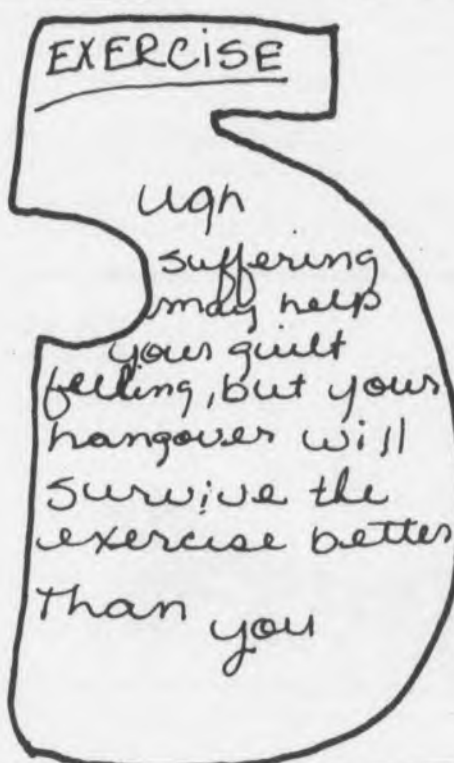 EXERCISE
ugh
suffering
may help
your guilt
felling, but your
hangover will
survive the
exercise better
than you